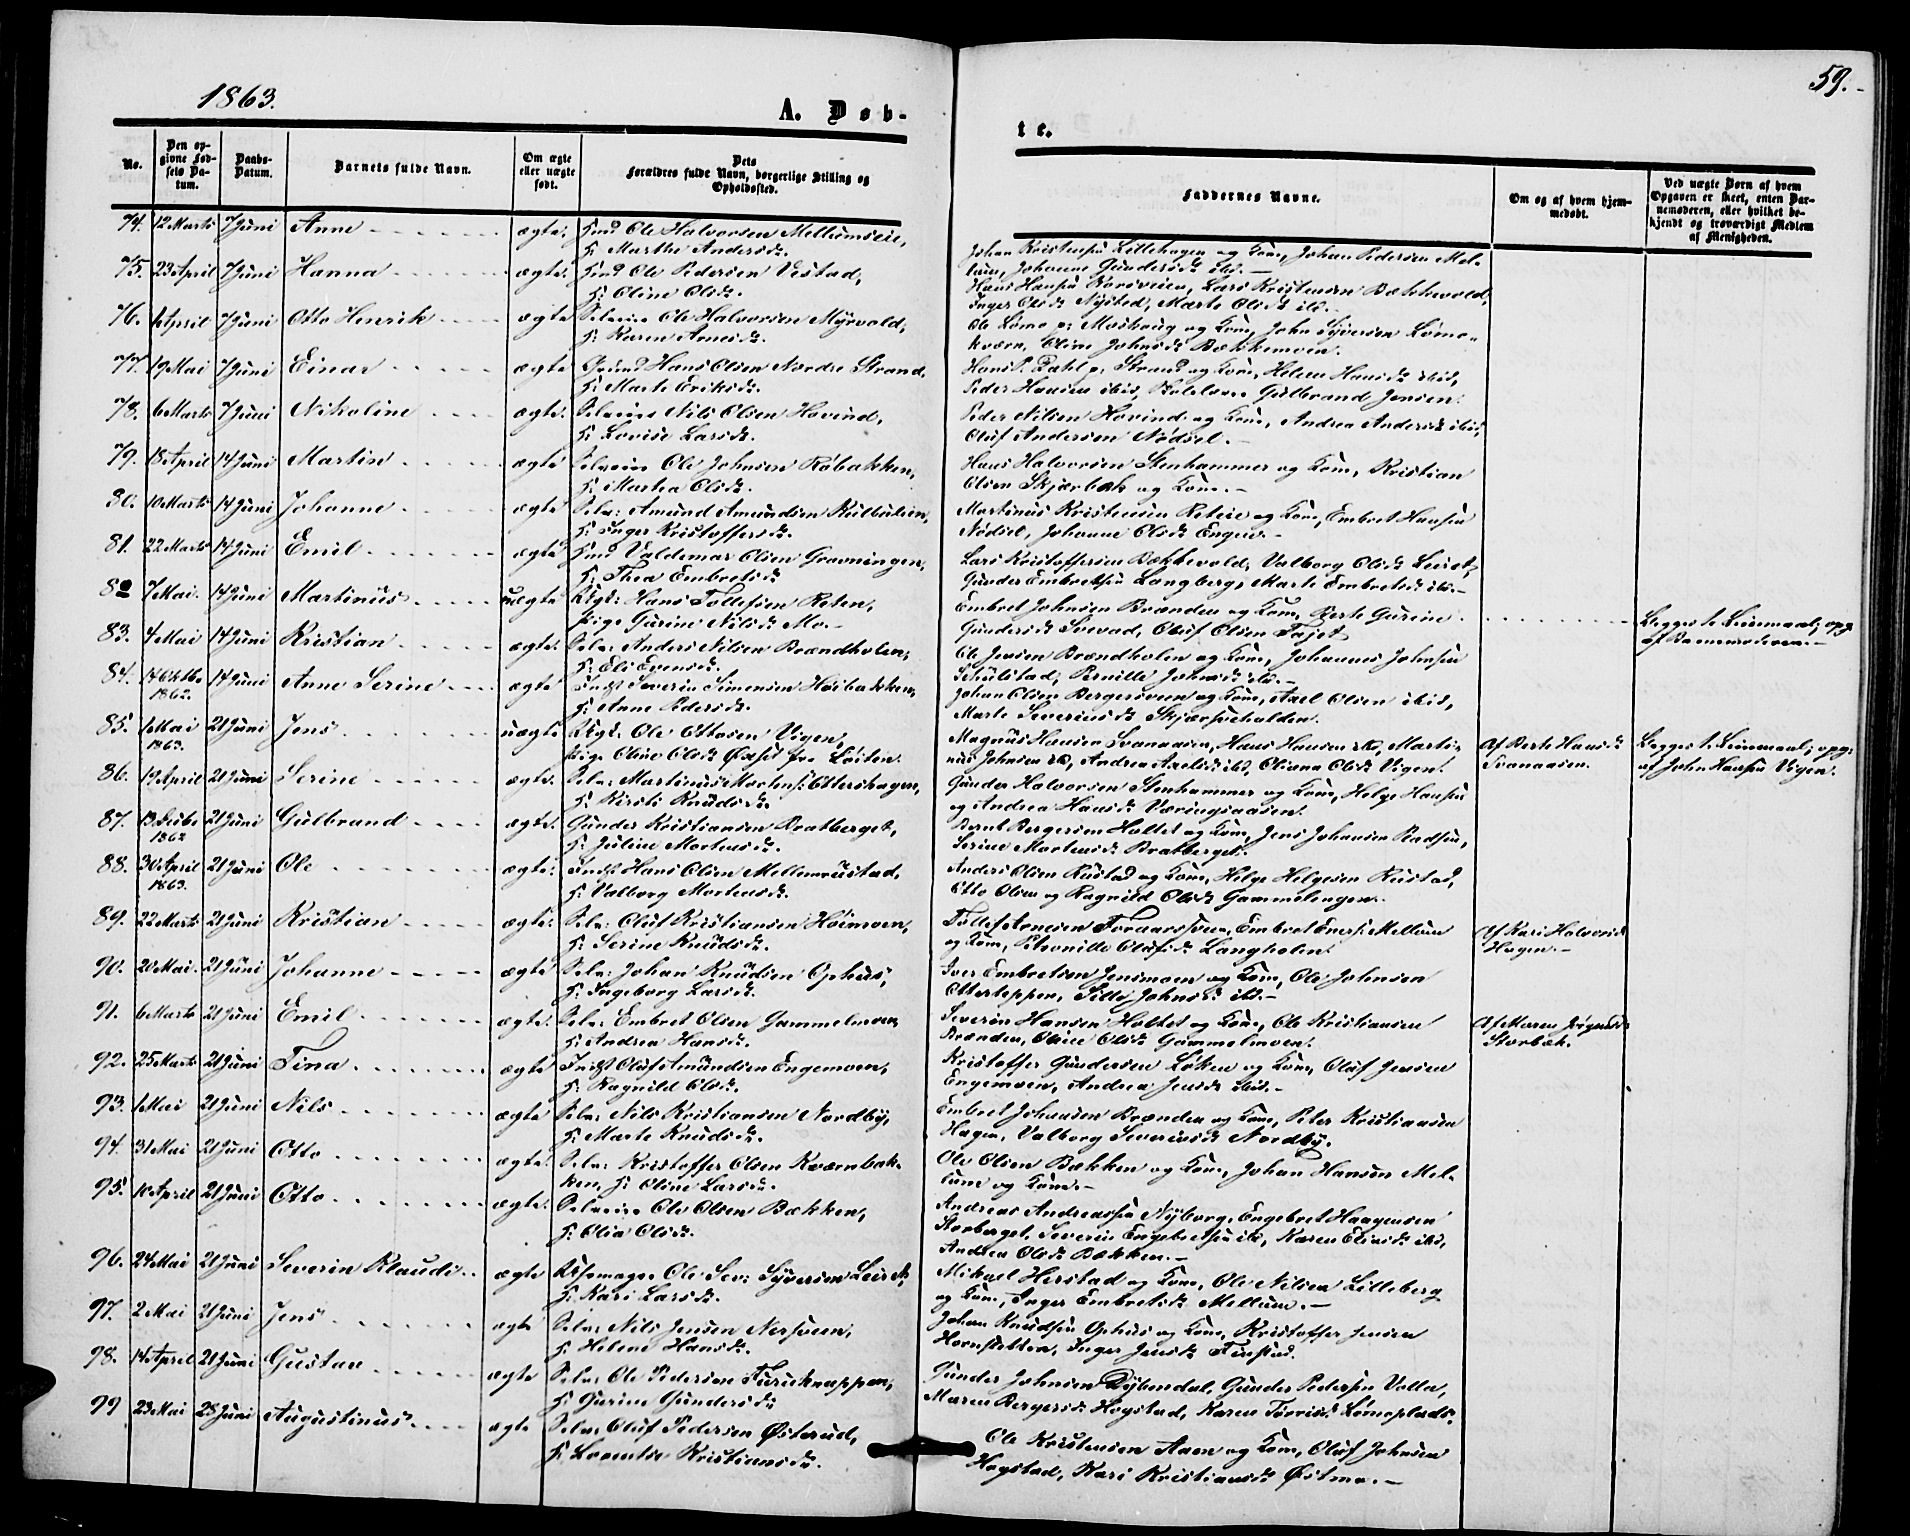 1863.
59.
A. Døb-
te.
No.
Den op-
givne Fød-
sels Da-
tum.
Daabs-
Datum.
Barnets fulde Navn.
Om ægte
eller uægte
født.
Dets
Forældres fulde Navn, borgerlige Stilling og
Opholdssted.
Faddernes Navne.
Om og af hvem hjem-
medøbt.
Ved uægte Børn af hvem
Opgaven er skeet, enten Bar-
nemoderen, eller hvilket be-
kjendt og troværdigt Medlem
af Menigheden.
74. 12 Marts 7 Juni Anne ægte. Ole Halvorsen Mellumseie,
H: Marthe Andersd.
Johan Kristensen Lillehagen og Kone, Johan Pedersen Mel-
lum, Johanne Gundersd. ibd.
75. 23 April 7 Juni Hanna ægte. Ole Pedersen Vestad,
H: Oline Olsd.
Hans Hansen, Lars Kristensen Bækkevold,
Inger Olsd. Nysted, Marte Olsd. ibd.
76. April 7 Juni Otto Henrik ægte Selveier Ole Halvorsen Myrvold,
H: Karen Arnesd.
Ole Lømo p: Moskaug og Kone, John Syversen Lømo-
kværn, Oline Johnsd. Bækkemoen.
77. 19 Mai 7 Juni Einar ægte Hans Olsen Nordre Strand,
H: Marte Eriksd.
Hans P. Dahl p: Strand og Kone, Helene Hansd. ibid,
Peder Hansen ibid, Gulbrand Jensen.
78. 6 Marts 7 Juni Nikoline ægte. Selveier Nils Olsen Hovind,
H: Lovise Larsd.
Peder Nilsen Hovind og Kone, Andrea Andersd. ibid,
Oluf Andersen Nødsel.
79. 18 April 14 Juni Martin ægte Selveier Ole Johnsen Røbakken,
H: Martea Olsd.
Hans Halvorsen Stenhammer og Kone, Kristian
Olsen Skjærbæk og Kone.
80. 10 Marts 14 Juni Johanne ægte Selv: Amund Amundsen Kulbulien,
H: Inger Kristoffersd.
Martinus Kristensen Reteie og Kone, Embret Hansen
Nødsel, Johanne Olsd. Engen.
81. 22 Marts 14 Juni Emil ægte Valdemar Olsen Grovningen,
H: Thea Embretsd.
Lars Kristoffersen Bækkevold, Valborg Olsd. Leiret,
Gunder Embretsen Langberg, Marte Embretsd. ibd.
82 7 Mai. 14 Juni Martinus uægte Ungk: Hans Tollefsen Reten,
Pige Gurine Nilsd. Mo.
Embret Johnsen Brænden og Kone, Berte Gurine
Gundersd. Sovad, Oluf Olsen Fajet
Begges 1. Leiermaal; opg:
af Barnemoderen.
83. 4 Mai 14 Juni Kristian ægte. Selv: Anders Nilsen Brændholen,
H: Eli Evensd.
Ole Jensen Brændholen og Kone, Johannes Johnsen
Schulstad, Pernille Johnsd. ibd.
84. 14 Oktbr.
1862. 14 Juni Anne Serine ægte Indst Severin Simensen Høibakken,
H: Anne Pedersd.
Johan Olsen Bergersveen og Kone, Axel Olsen ibid,
Marte Severinsd. Skjærsveholden.
85. 1 Mai
1863. 21 Juni Jens uægte Ungk. Ole Ottosen Vigen,
Pige Oline Olsd. fra Løiten.
Magnus Hansen Svanaasen, Hans Hansen, Marti-
nus Johnsen, Andrea Axelsd. ibd, Oliana Olsd. Vigen.
Af Berte Hansd.
Svanaasen.
Begges 1. Leiermaal; opg:
af John Hansen Vigen.
86. 19 April 21 Juni Serine ægte. Selv: Martinus Mortens: Ottershagen,
H: Kirsti Knudsd.
Gunder Halvorsen Stenhammer og Kone, Helge Hansen
og Andrea Hansd. Væringsaasen.
87. 13 Febr.
1862 21 Juni Gulbrand ægte. Gunder Kristiansen Bratberget,
H: Juline Mortensd.
Bernt Bergersen Holtet og Kone, Jens Johansen,
Serine Mortensd. Bratberget.
88. 30 April
1863. 21 Juni Ole ægte. Indst Hans Olsen Mellemrustad,
H: Valborg Mortensd.
Anders Olsen Rustad og Kone, Helge Helgesen Rustad,
Otto Olsen og Ragnild Olsd. Gammelengen.
89. 22 Marts 21 Juni Kristian ægte. Selv: Oluf Kristiansen Høimoen,
H: Serine Knudsd.
Tollef Arnesen, Embret Embrets: Mellum
og Kone, Petronille Olafsd. Langholen.
Af Kari Halvorsd.
Hagen.
90. 20 Mai. 21 Juni Johanne ægte Selv: Johan Knudsen Ophus,
H: Ingeborg Larsd.
Iver Embretsen Jensmoen og Kone, Ole Johnsen
Otterteppen, Sille Johnsd. ibd.
91. 6 Marts 21 Juni Emil ægte. Selv: Embret Olsen Gammelmoen,
H: Andrea Hansd.
Severin Hansen Holtet og Kone, Ole Kristiansen
Brænden, Oline Olsd. Gammelmoen.
Af Maren
Storbæk.
92. 25 Marts 21 Juni Tina ægte Indst Oluf Amundsen Engemoen,
H: Ragnild Olsd.
Kristoffer Gundersen Løken og Kone, Oluf Jensen
Engemoen, Andrea Jensd. ibd.
93. 1 Mai 21 Juni Nils ægte Selv: Nils Kristiansen Nordby,
H: Marte Knudsd.
Embret Johansen Brænden og Kone, Peter Kristiansen
Hagen, Valborg Severinsd. Nordby.
94. 31 Mai 21 Juni Otto ægte. Selv: Kristoffer Olsen Kværnbak-
ken, H: Oline Larsd.
Ole Olsen Bækken og Kone, Johan Hansen Mel-
lum og Kone.
95. 10 April 21 Juni Otto ægte. Selveier Ole Olsen Bækken,
H: Olia Olsd.
Andreas Andreassen Nyborg, Engebret Haagensen
Storberget, Severin Engebretsen ibd, Karen Eliasd. ibd,
Andrea Olsd. Bækken.
96. 24 Mai 21 Juni Severin Klaudi ægte Uhrmager Ole Sev: Syversen Leiret,
H: Kari Larsd.
Mikael Herstad og Kone, Ole Nilsen Lilleberg
og Kone, Inger Embretsd. Mellum.
97. 2 Mai 21 Juni Jens ægte Selv: Nils Jensen Nersveen,
H: Helene Hansd.
Johan Knudsen Ophus og Kone, Kristoffer Jensen
Hornstetten, Inger Jensd. Finstad.
98. 14 April 21 Juni Gustav ægte Selv: Ole Pedersen Furuknappen,
H: Gurine Gundersd.
Gunder Johnsen Dybendal, Gunder Pedersen Volla,
Maren Bergersd. Hogstad, Karen Lømoplads.
99 23 Mai 28 Juni Augustinus ægte Selv: Oluf Pedersen Østerud,
H: Lorentse Kristiansd.
Ole Kristensen Aaen og Kone, Oluf Johnsen
Hogstad, Kari Kristiansd. Østmo.